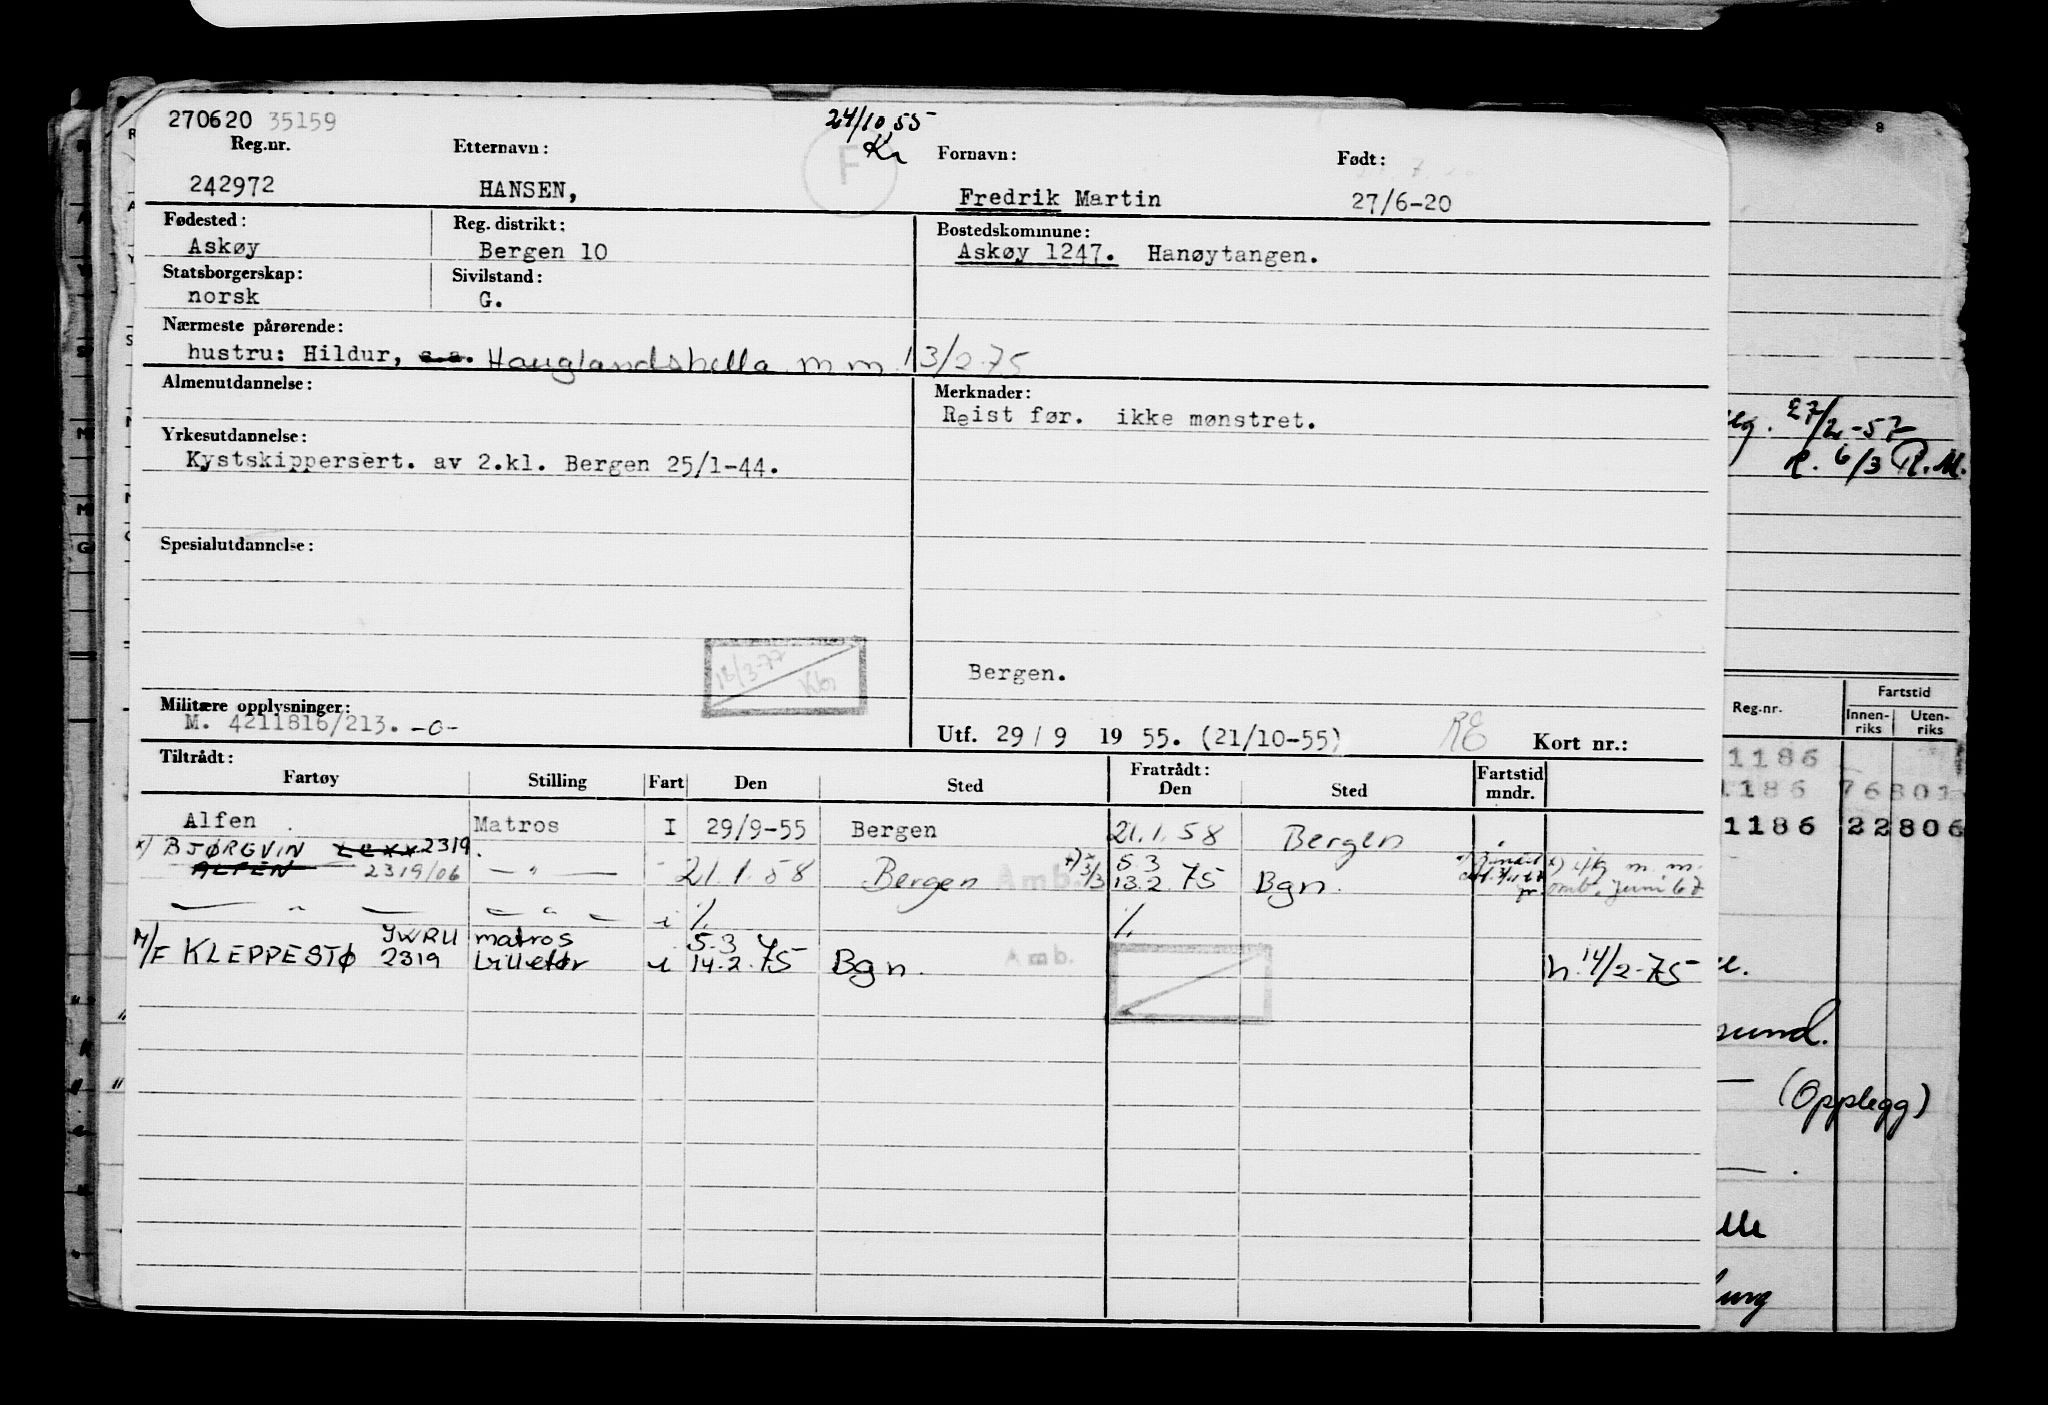 270620 35159
24/10 55
Reg.nr. Etternavn: Kr F Fornavn: Født:
242972 HANSEN, Fredrik Martin 27/6-20
Fødested: Reg. distrikt: Bostedskommune:
Askøy Bergen 10 Askøy 1247. Hanøytangen.
Statsborgerskap: Sivilstand:
norsk G.
Nærmeste pårørende:
hustru: Hildur, s.s. Hauglandshella m m 13/2-75
Almenutdannelse: Merknader:
Reist før. ikke mønstret.
Yrkesutdannelse:
Kystskippersert. av 2.kl. Bergen 25/1-44.
Spesialutdannelse:
18/3-77
Bergen.
Militære opplysninger:
M. 4211816/213. -o-
Utf. 29 / 9 19 55. (21/10-55) RE Kort nr.:
Tiltrådt: Fratrådt:
Fartøy Stilling Fart Den Sted Den Sted Fartstid mndr.
Alfen Matros I 29/9-55 Bergen 21.1.58 Bergen
x) BJØRGVIN 2319
ALFEN 2319/06 — " — 21.1.58 Bergen Amb. 3/3 5.3 13.2.75 Bgn. m. m. juni 67
— " — — " — i % %
M/F KLEPPESTØ JWRU 2319 matros Billettør i 5.3 14.2.75 Bgn. Amb. h. 14/2-75
27/2-57
R. 6/3 R.M.
Reg.nr. Fartstid
Innenriks Utenriks
1186
1186 76801
1186 22806
sund.
(Opplegg)